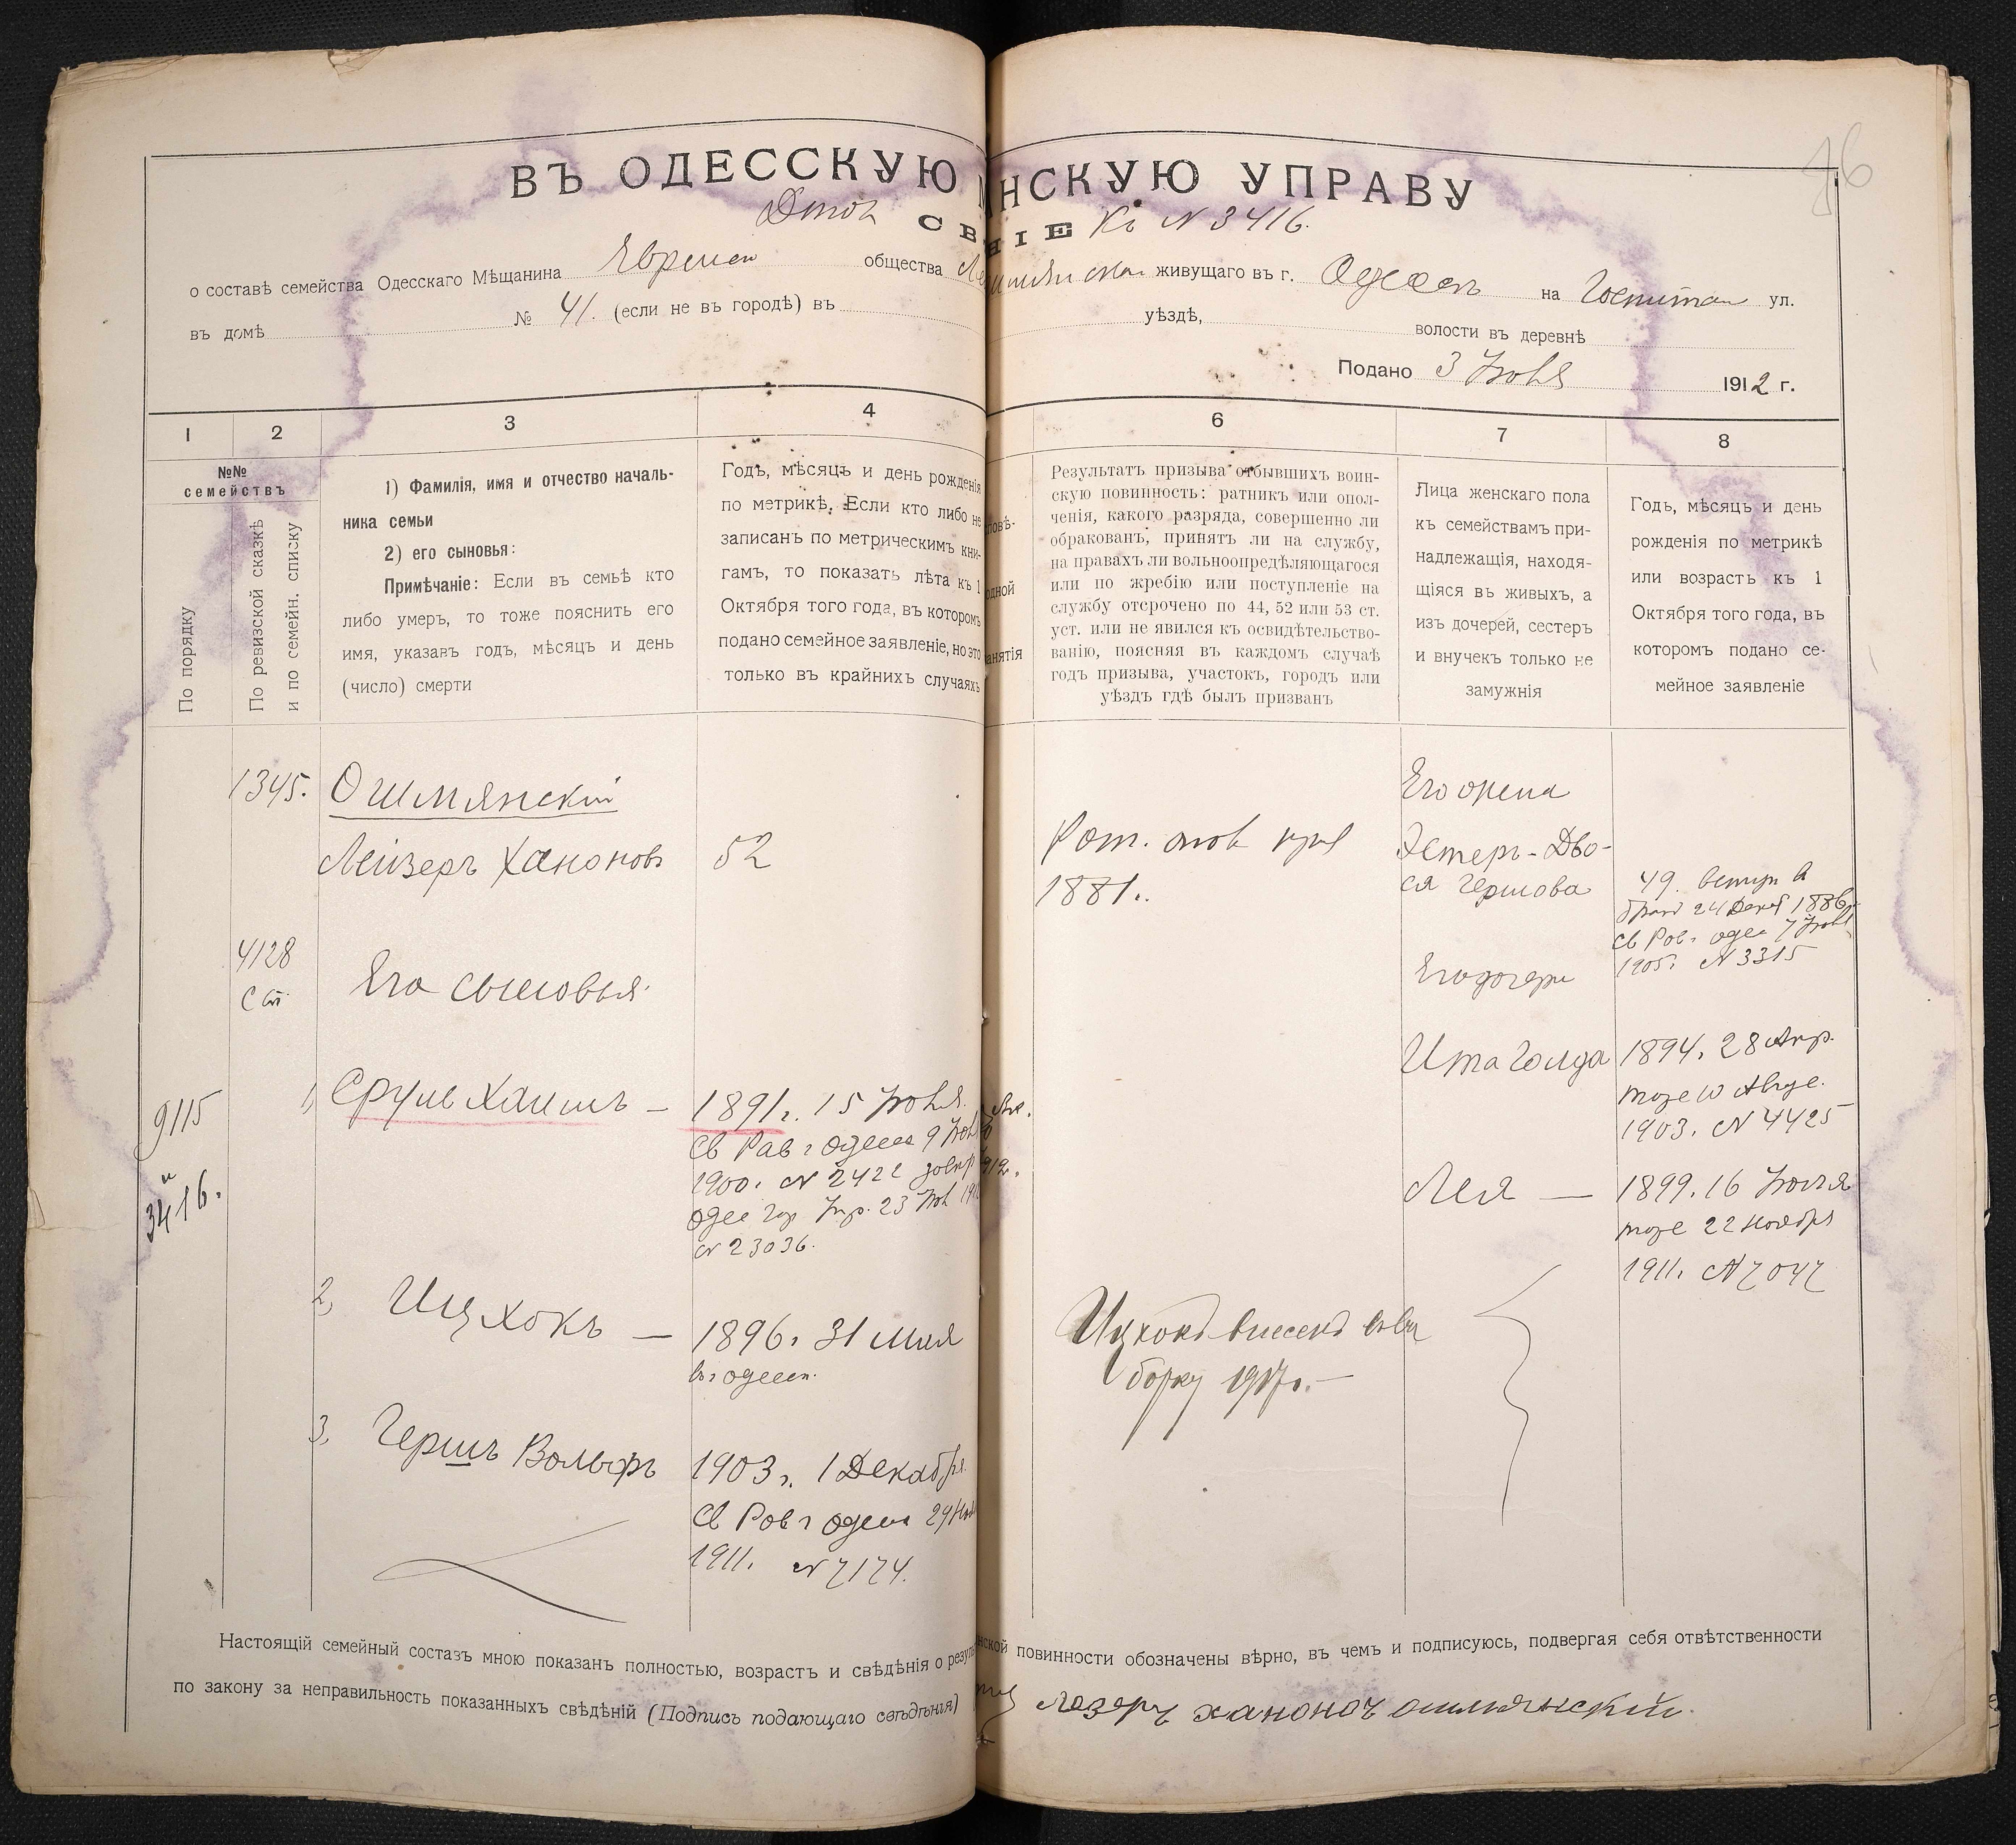 46
ВЪ ОДЕССКУЮ НСКУЮ УПРАВУ
СВ НІЕ Къ N 3416.
о составѣ семейства Одесскаго Мѣщанина Евреи общества живущаго въ г. Одессѣ на Госпитал ул.
въ домѣ № 41. (если не въ городѣ) въ уѣздѣ, волости въ деревнѣ
Подано 3 Іюня 1912 г.
1 2 3 4 6 7 8
№№
семействъ
По порядку
По ревизской сказкѣ
и по семейн. списку
1) Фамилія, имя и отчество началь-
ника семьи
2) его сыновья:
Примѣчаніе: Если въ семьѣ кто
либо умеръ, то тоже пояснить его
имя, указавъ годъ, мѣсяцъ и день
(число) смерти
Годъ, мѣсяцъ и день рожденія
по метрикѣ. Если кто либо не
записанъ по метрическимъ кни-
гамъ, то показать лѣта къ 1
Октября того года, въ которомъ
подано семейное заявленіе, но это
только въ крайнихъ случаяхъ
повѣ-
одной
анятія
Результатъ призыва отбывшихъ воин-
скую повинность: ратникъ или опол-
ченія, какого разряда, совершенно ли
обракованъ, принятъ ли на службу,
на правахъ ли вольноопредѣляющагося
или по жребію или поступленіе на
службу отсрочено по 44, 52 или 53 ст.
уст. или не явился къ освидѣтельство-
ванію, поясняя въ каждомъ случаѣ
годъ призыва, участокъ, городъ или
уѣздъ гдѣ былъ призванъ
Лица женскаго пола
къ семействамъ при-
надлежащія, находя-
щіяся въ живыхъ, а
изъ дочерей, сестеръ
и внучекъ только не
замужнія
Годъ, мѣсяцъ и день
рожденія по метрикѣ
или возрастъ къ 1
Октября того года, въ
которомъ подано се-
мейное заявленіе
1345. Ошмянскій
Лейзеръ Хононовъ 52
Рат.
1881.
Его жена
Эстеръ-Дво-
ся Гершова
49. вступ въ
бракъ 24 Декаб 1886
Св Рав. одес 7 Іюня
1905. N 3315
4128
Ст
Его сыновья.
Его дочери
Ита Голда 1894. 28 Апр.
тоже 10 Авгус.
1903. N 4425
9115
и
3416.
1, Сруль Хаимъ — 1891 г. 15 Іюня.
Св Рав г Одессы 9 Іюня
1900. N 2422
Одес Гор Упр. 23
N 23036.
Лея — 1899. 16 Іюля
тоже 22 ноября
1911. N 7047
2, Ицхокъ — 1896. 31 Мая
въ г Одессѣ.
Ицхокъ внесенъ въ вы
борку 1917 г. —
3, Гершъ Вольфъ 1903 г. 1 Декабря
Св Рав г Одессы 29 Ноя
1911. N 7174.
Настоящій семейный составъ мною показанъ полностью, возрастъ и свѣдѣнія о резуль нской повинности обозначены вѣрно, въ чемъ и подписуюсь, подвергая себя отвѣтственности
по закону за неправильность показанныхъ свѣдѣній (Подпись подающаго свѣдѣнія) Лезеръ Ханоноч Ошмянский